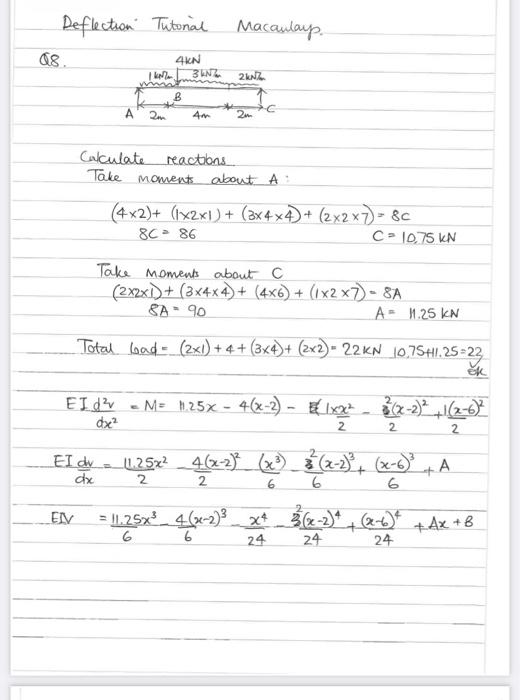 Deflection Tutorial Macaulays.
Q8.
4kN
1kN/m 3kN/m 2kN/m
B
A 2m 4m 2m C
Calculate reactions
Take moments about A:
(4×2)+ (1×2×1) + (3×4×4)+ (2×2×7) = 8C
8C = 86 C = 10.75 kN
Take moments about C
(2×2×1)+ (3×4×4) + (4×6) + (1×2×7) = 8A
8A = 90 A = 11.25 kN
Total load = (2×1) + 4 + (3×4)+ (2×2) = 22kN 10.75+11.25=22
ok
EI d²v/dx² = M = 11.25x - 4(x-2) - 1×x²/2 - 2(x-2)²/2 + 1(x-6)²/2
EI dv/dx = 11.25x²/2 - 4(x-2)²/2 - (x³)/6 - 2(x-2)³/6 + (x-6)³/6 + A
EIV = 11.25x³/6 - 4(x-2)³/6 - x⁴/24 - 2(x-2)⁴/24 + (x-6)⁴/24 + Ax + B